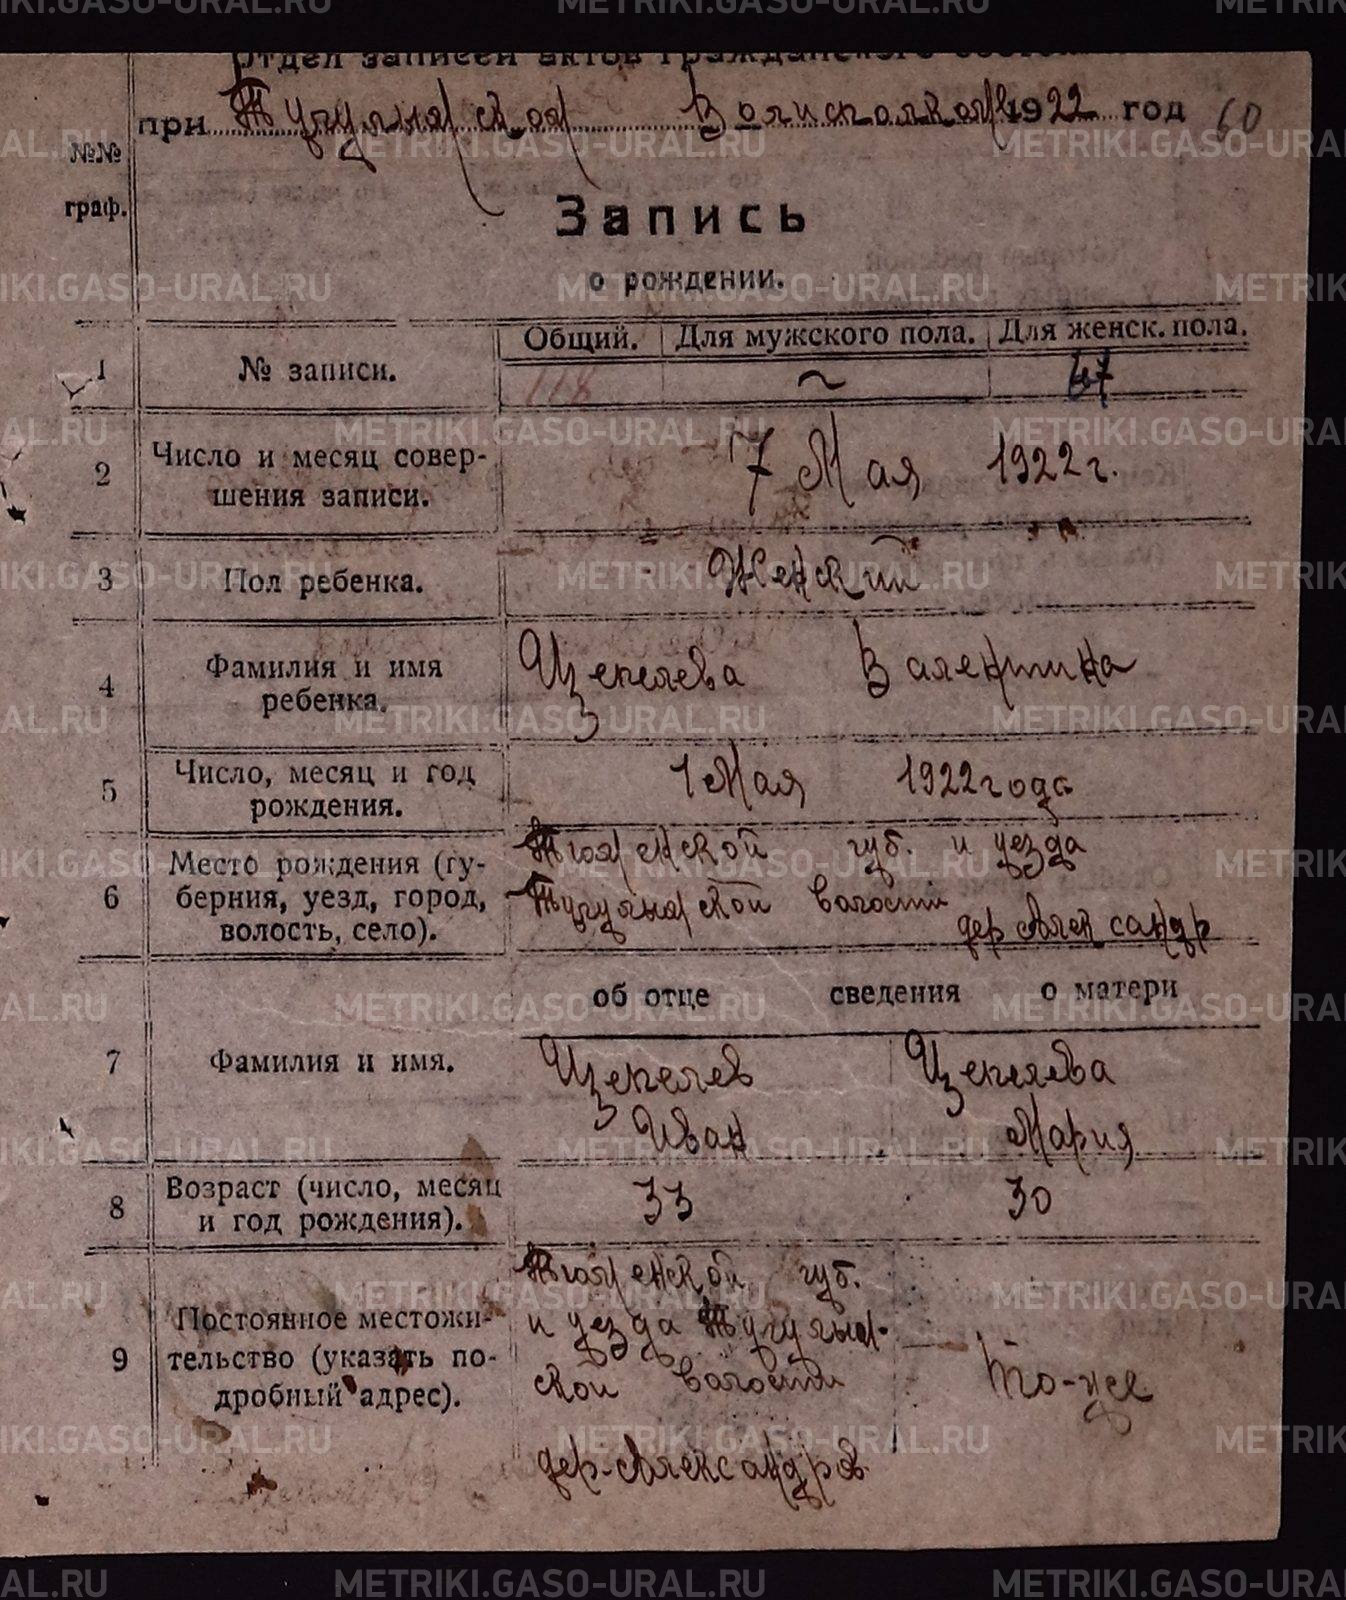 Отдел записей актов гражданского состоян
при Тугулымском Волисполкоме 1922 год 60
№№
граф.
Запись
о рождении.
Общий. Для мужского пола. Для женск. пола.
1 № записи. 118 ~ 67
2 Число и месяц совер-
шения записи. 17 Мая 1922 г.
3 Пол ребенка. Женский
4 Фамилия и имя
ребенка. Щепелева Валентина
5 Число, месяц и год
рождения. 1 Мая 1922 года
6 Место рождения (гу-
берния, уезд, город,
волость, село).
Тюменской губ. и уезда
Тугулымской волости
дер Александр
об отце сведения о матери
7 Фамилия и имя. Щепелев Щепелева
Иван Мария
8 Возраст (число, месяц
и год рождения). 33 30
9 Постоянное местожи-
тельство (указать по-
дробный адрес).
Тюменской губ.
и уезда Тугулым-
ской волости То-же
дер. Александров
METRIKI.GASO-URAL.RU